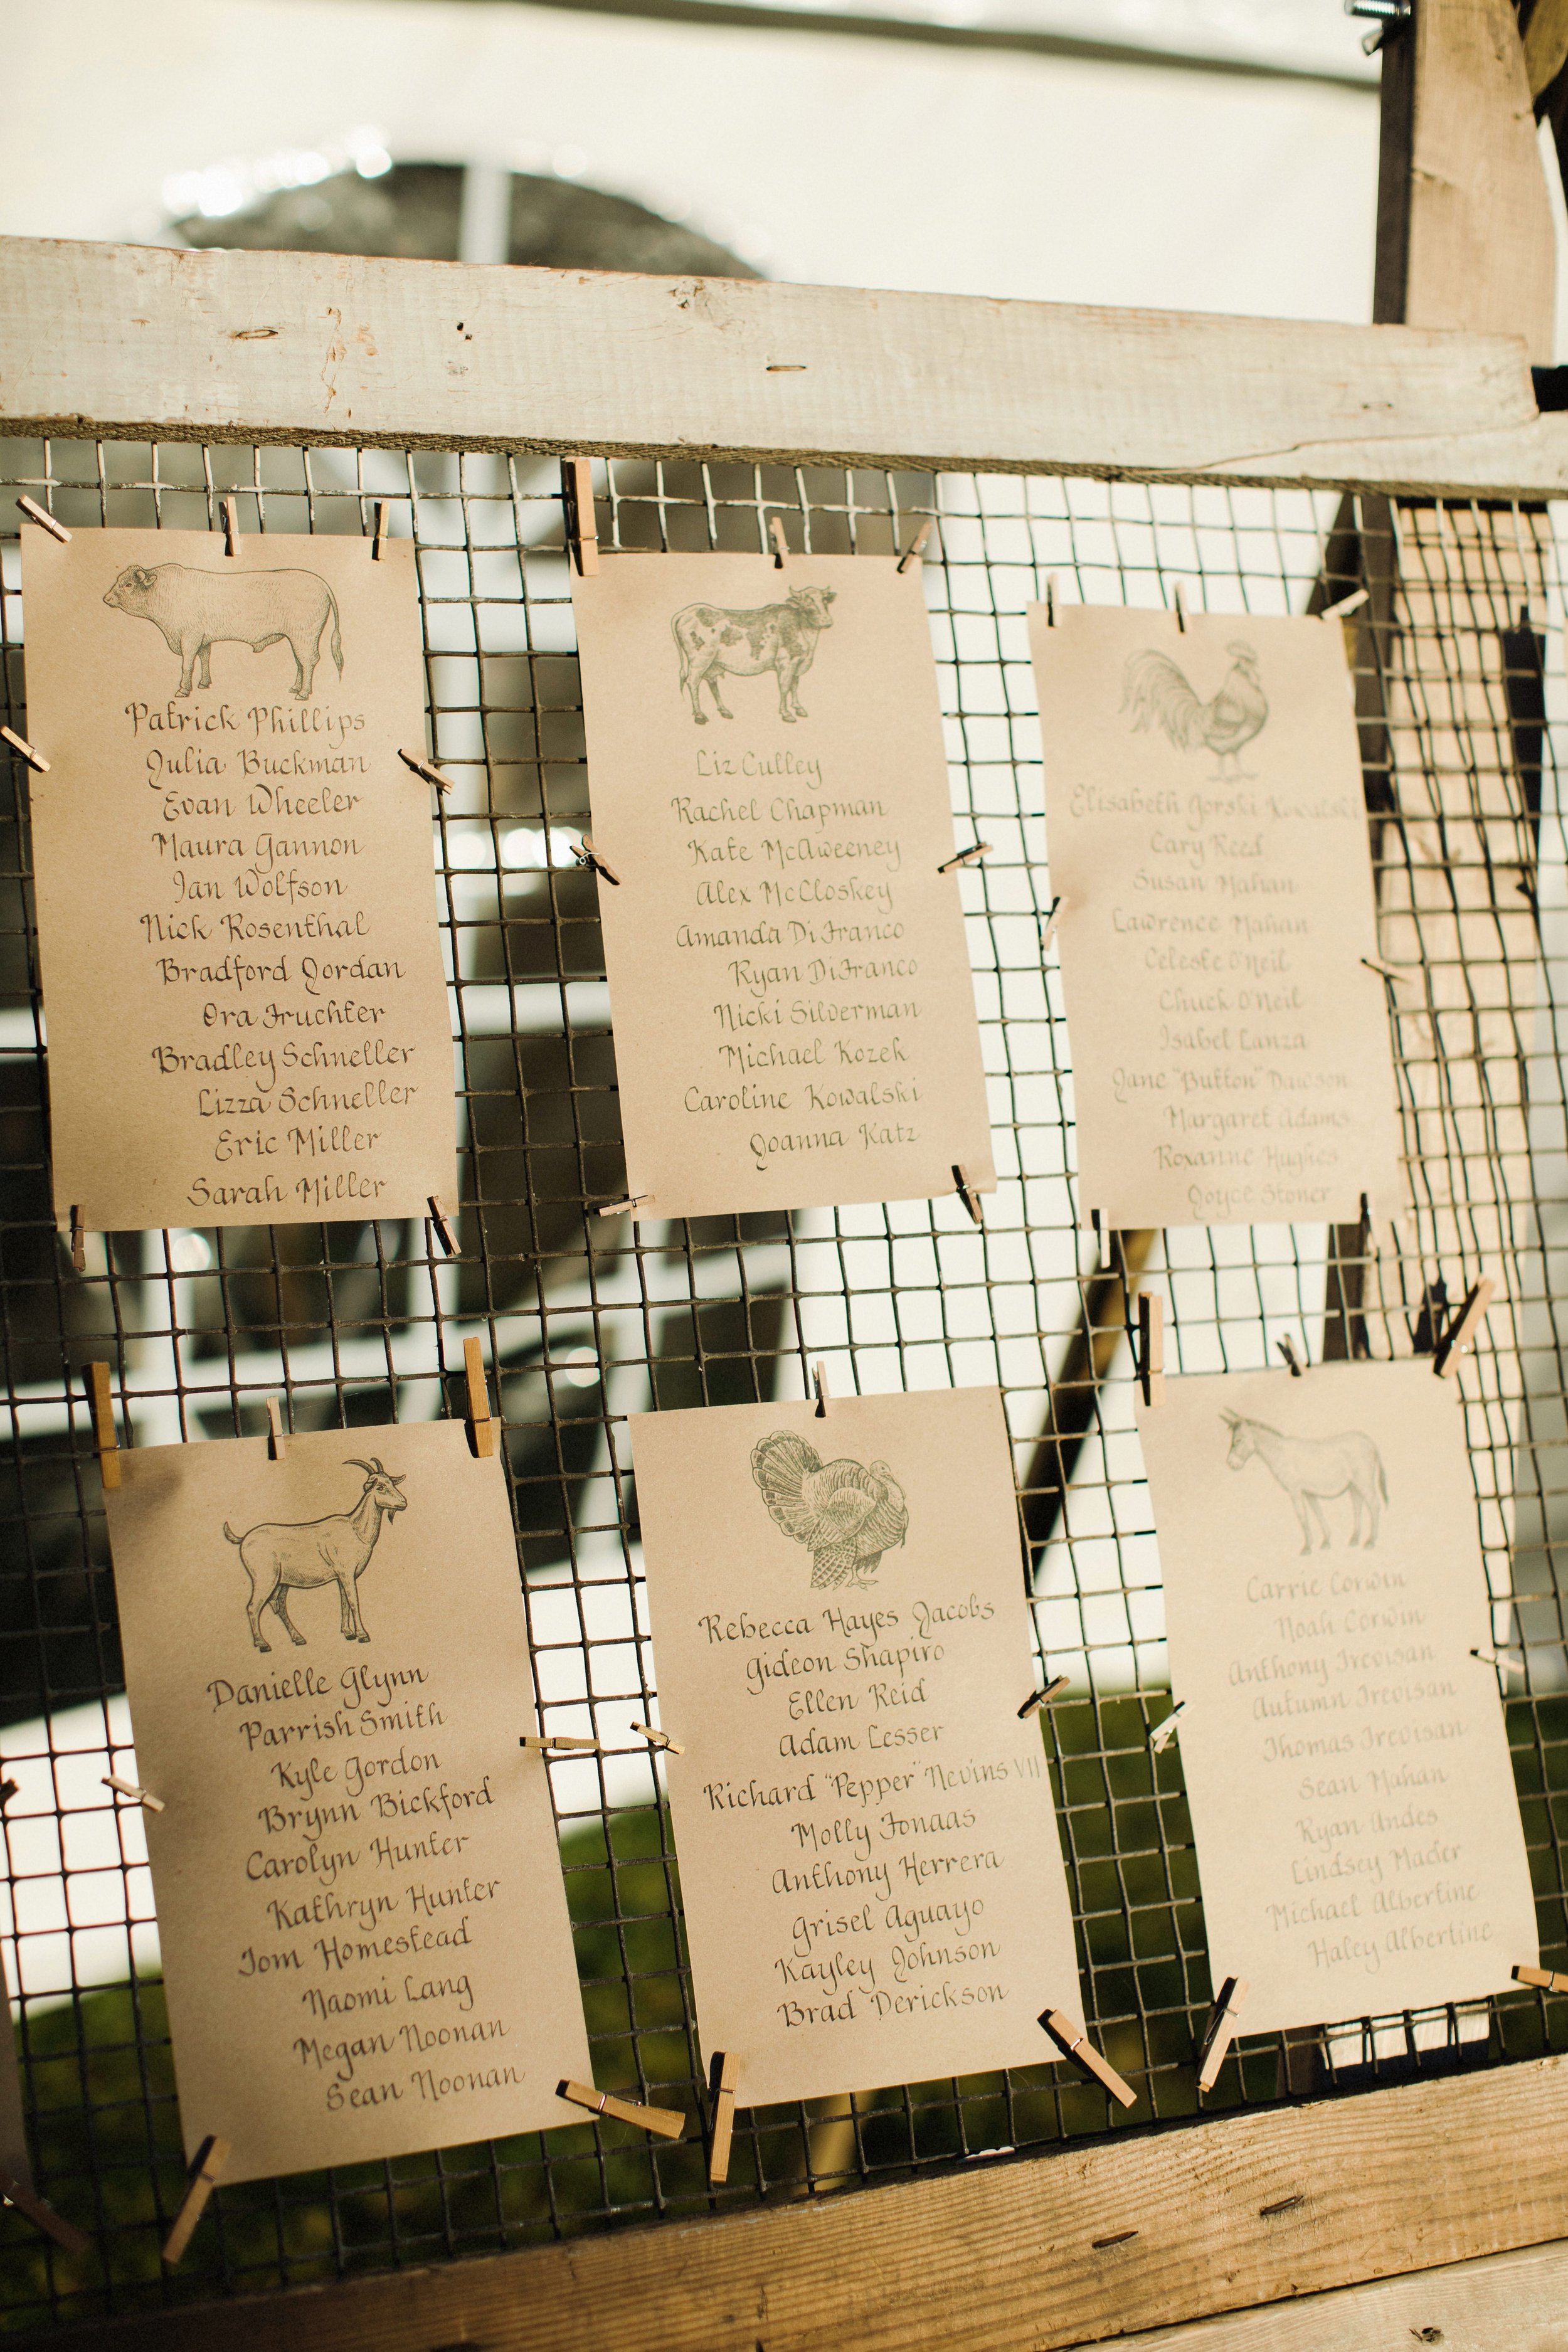 Patrick Phillips
Julia Buckman
Evan Wheeler
Maura Gannon
Ian Wolfson
Nick Rosenthal
Bradford Jordan
Ora Fruchter
Bradley Schneller
Lizza Schneller
Eric Miller
Sarah Miller
Liz Culley
Rachel Chapman
Kate McAweeney
Alex McCloskey
Amanda DiFranco
Ryan DiFranco
Nicki Silverman
Michael Kozek
Caroline Kowalski
Joanna Katz
Elisabeth Gorski Kowalski
Cary Reed
Susan Mahan
Lawrence Mahan
Celeste O'Neil
Chuck O'Neil
Isabel Lanza
Jane "Button" Dawson
Margaret Adams
Roxanne Hughes
Joyce Stoner
Danielle Glynn
Parrish Smith
Kyle Gordon
Brynn Bickford
Carolyn Hunter
Kathryn Hunter
Tom Homestead
Naomi Lang
Megan Noonan
Sean Noonan
Rebecca Hayes Jacobs
Gideon Shapiro
Ellen Reid
Adam Lesser
Richard "Pepper" Nevins VII
Molly Fonaas
Anthony Herrera
Grisel Aguayo
Kayley Johnson
Brad Derickson
Carrie Corwin
Noah Corwin
Anthony Trevisan
Autumn Trevisan
Thomas Trevisan
Sean Mahan
Ryan Andes
Lindsey Mader
Michael Albertine
Haley Albertine